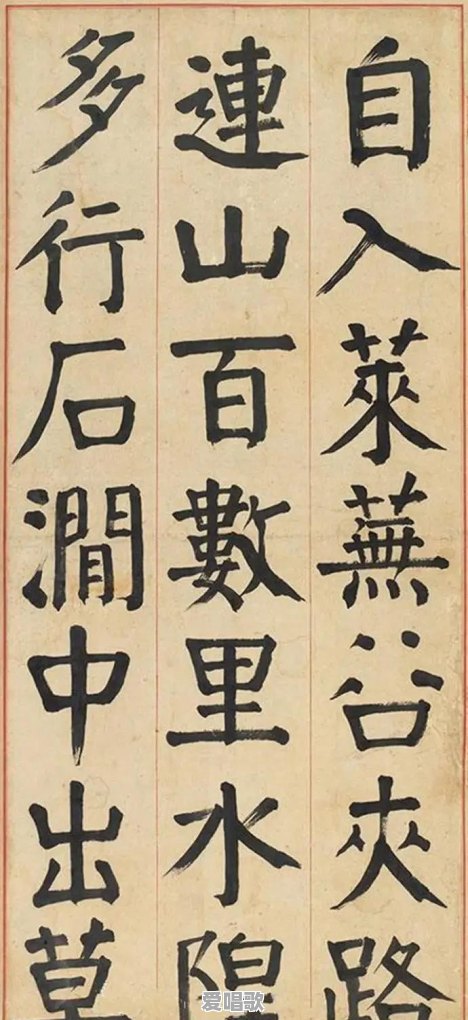 自入萊蕪谷夾路
連山百數里水隍
多行石澗中出草
爱唱歌